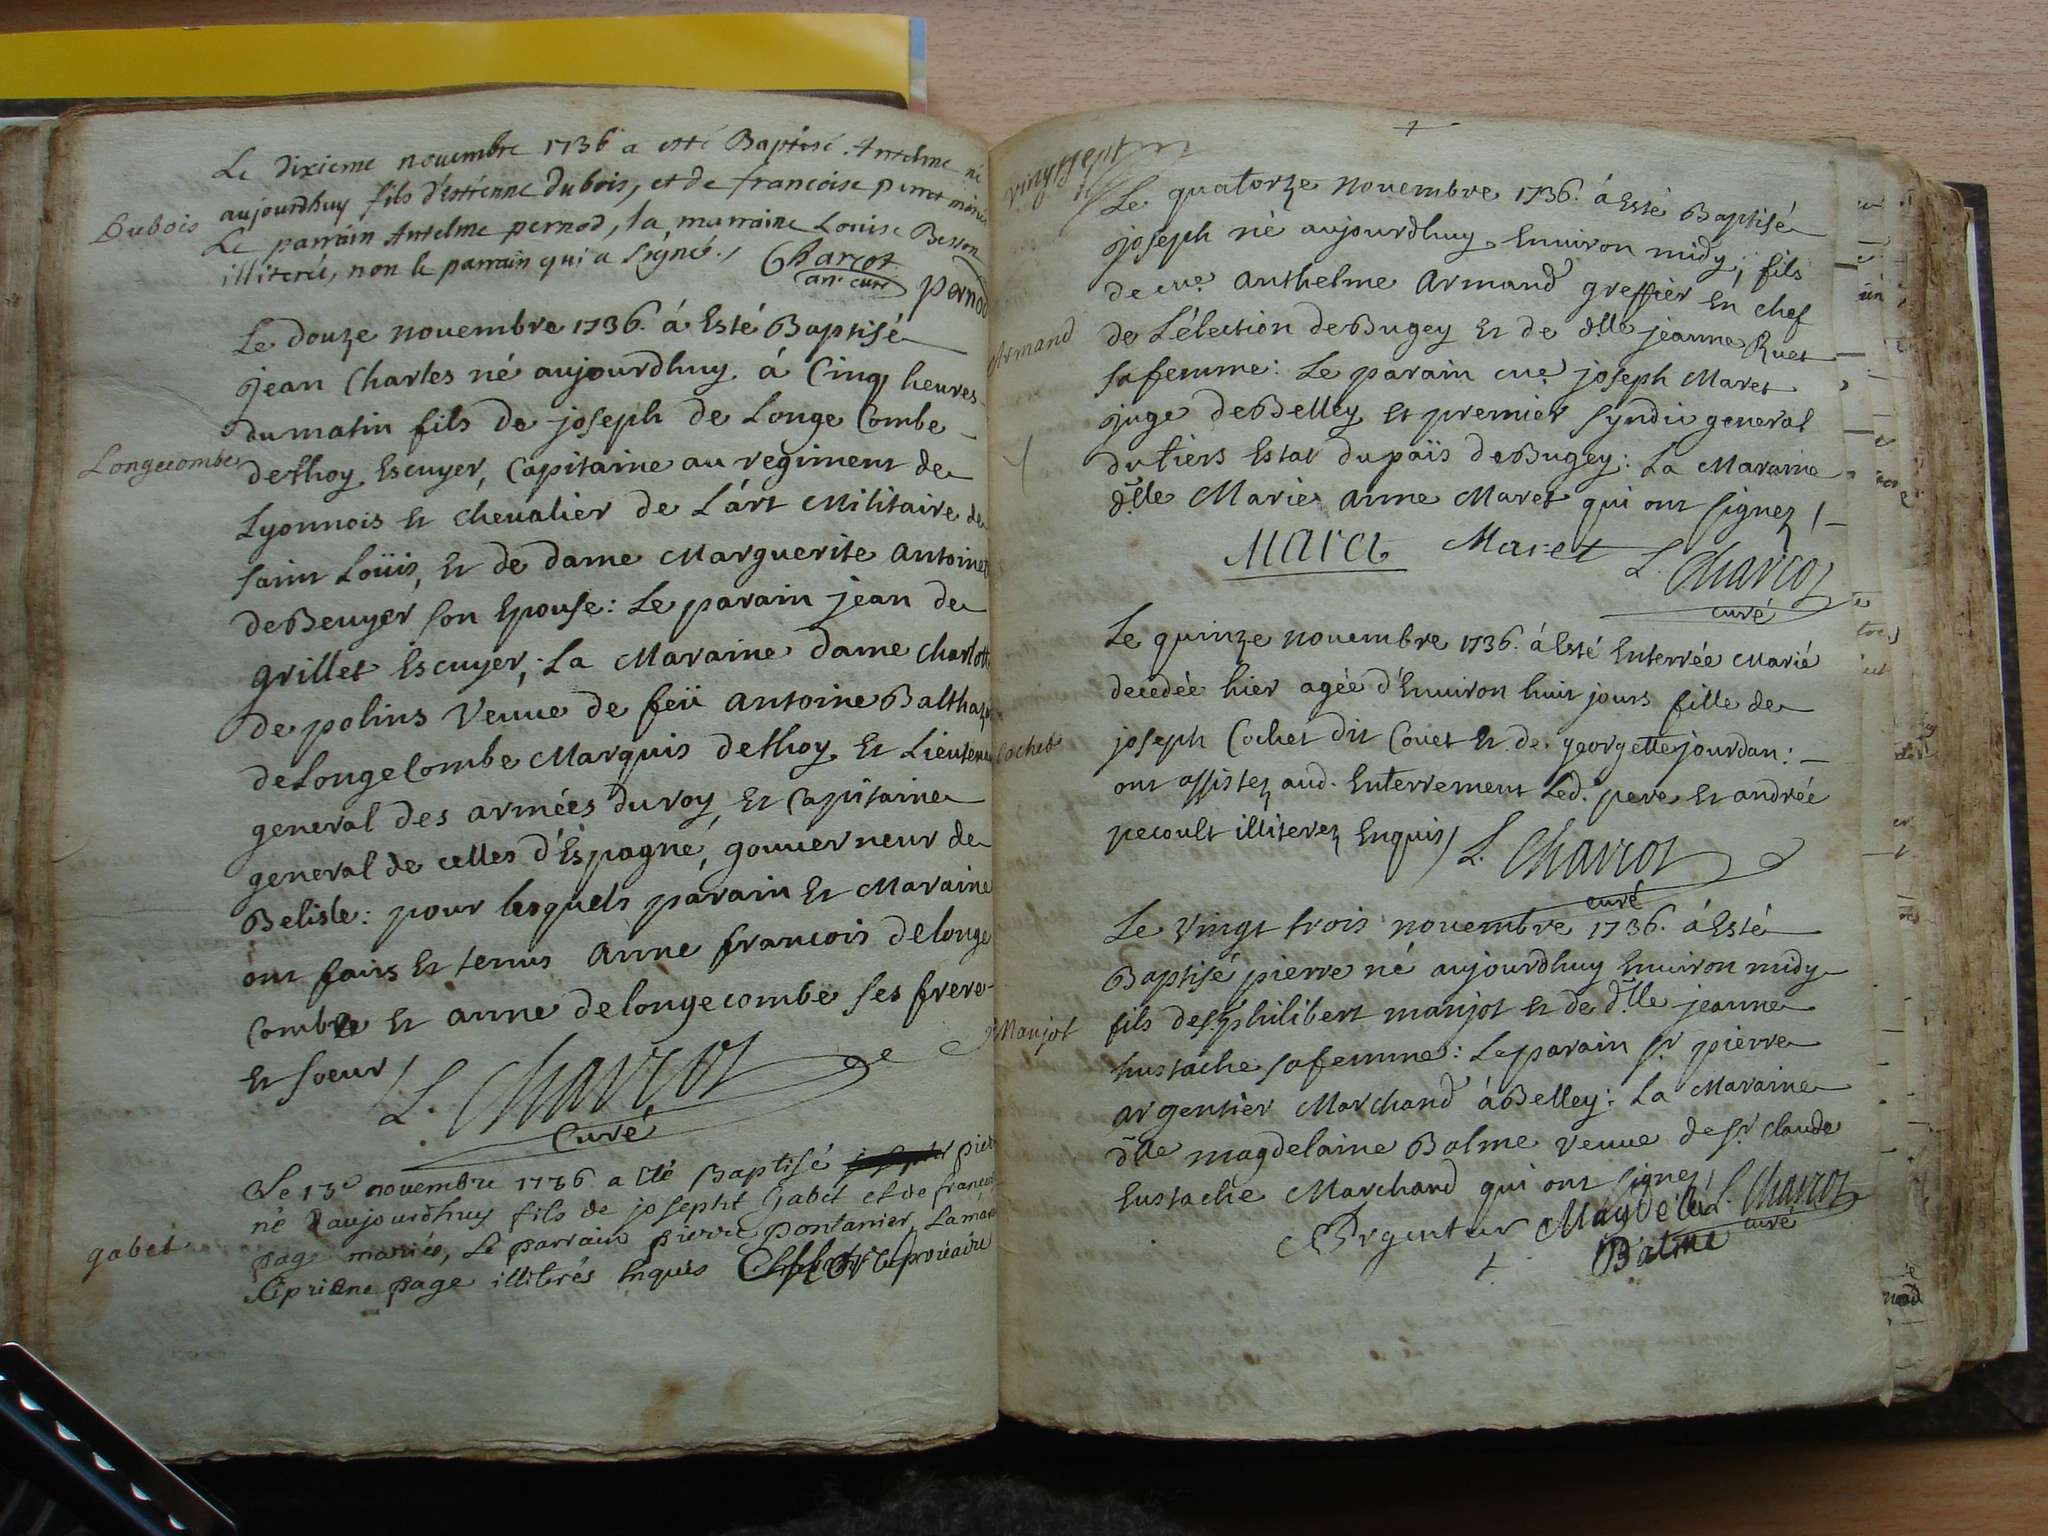 Le dixieme novembre 1736 a esté Baptisé Antelme né
Dubois
aujourdhuy fils d'estienne Dubois, et de francoise perret mariés
Le parrain Antelme pernod, la marraine Louise Besson
illiterée, non le parrain qui a signé. / Charcot
an. curé
pernod
Le douze novembre 1736. á Esté Baptisé
jean Charles né aujourdhuy á Cinq heures
du matin fils de joseph de Longe Combe
Longecombe
dethoy Escuyer, Capitaine au regiment de
Lyonnois Et Chevalier de L'árt Militaire de
saint Loüis, Et de dame Marguerite antoinet
de Beuyer son Epouse: Le parain jean de
grillet Escuyer, La Maraine dame charlotte
de polins Veuve de feü antoine Balthazar
de Longe Combe Marquis dethoy Et Lieutenant
general des armées du roy, Et Capitaine
general de celles d'Espagne, gouverneur de
Belisle: pour lesquels parain Et Maraine
ont fais Et tenus anne francois de longe
Combe Et anne de longecombe ses frere
Et soeur /
L. Charcot
Curé
Le 13e novembre 1736 a été Baptisé pierre
né aujourdhuy fils de josepht Gabet et de francoise
gabet
page mariés, Le parrain pierre pontanier, La maraine
Cipriene page illiterés Enquis vicaire
vingt sept
Le quatorze novembre 1736. á Esté Baptisé
joseph né aujourdhuy Environ midy, fils
de me. anthelme Armand greffier En chef
Armand
de L'élection de Bugey Et de dlle jeanne Ruet
sa femme: Le parain me. joseph Maret
juge de Belley Et premier syndic general
du tiers Estat du païs de Bugey: La Maraine
dlle Marie anne Maret qui ont signez /
Maret Maret L. Charcot
curé
Le quinze novembre 1736. á Esté Enterrée Marie
decedée hier agée d'Environ huit jours fille de
joseph Cochet dit Couet Et de georgette jourdan:
Cochet
ont assistez aud. Enterrement Led. pere Et andrée
pecoult illiterez Enquis / L. Charcot
curé
Le Vingt trois novembre 1736. á Esté
Baptisé pierre né aujourdhuy Environ midy
fils de Sr philibert manjot Et de dlle jeanne
Manjot
Eustache sa femme: Le parain sr pierre
argentier Marchand á Belley: La Maraine
dlle magdelaine Balme Veuve de sr Claude
Eustache Marchand qui ont signez / L. Charcot
curé
Argentier
Balme